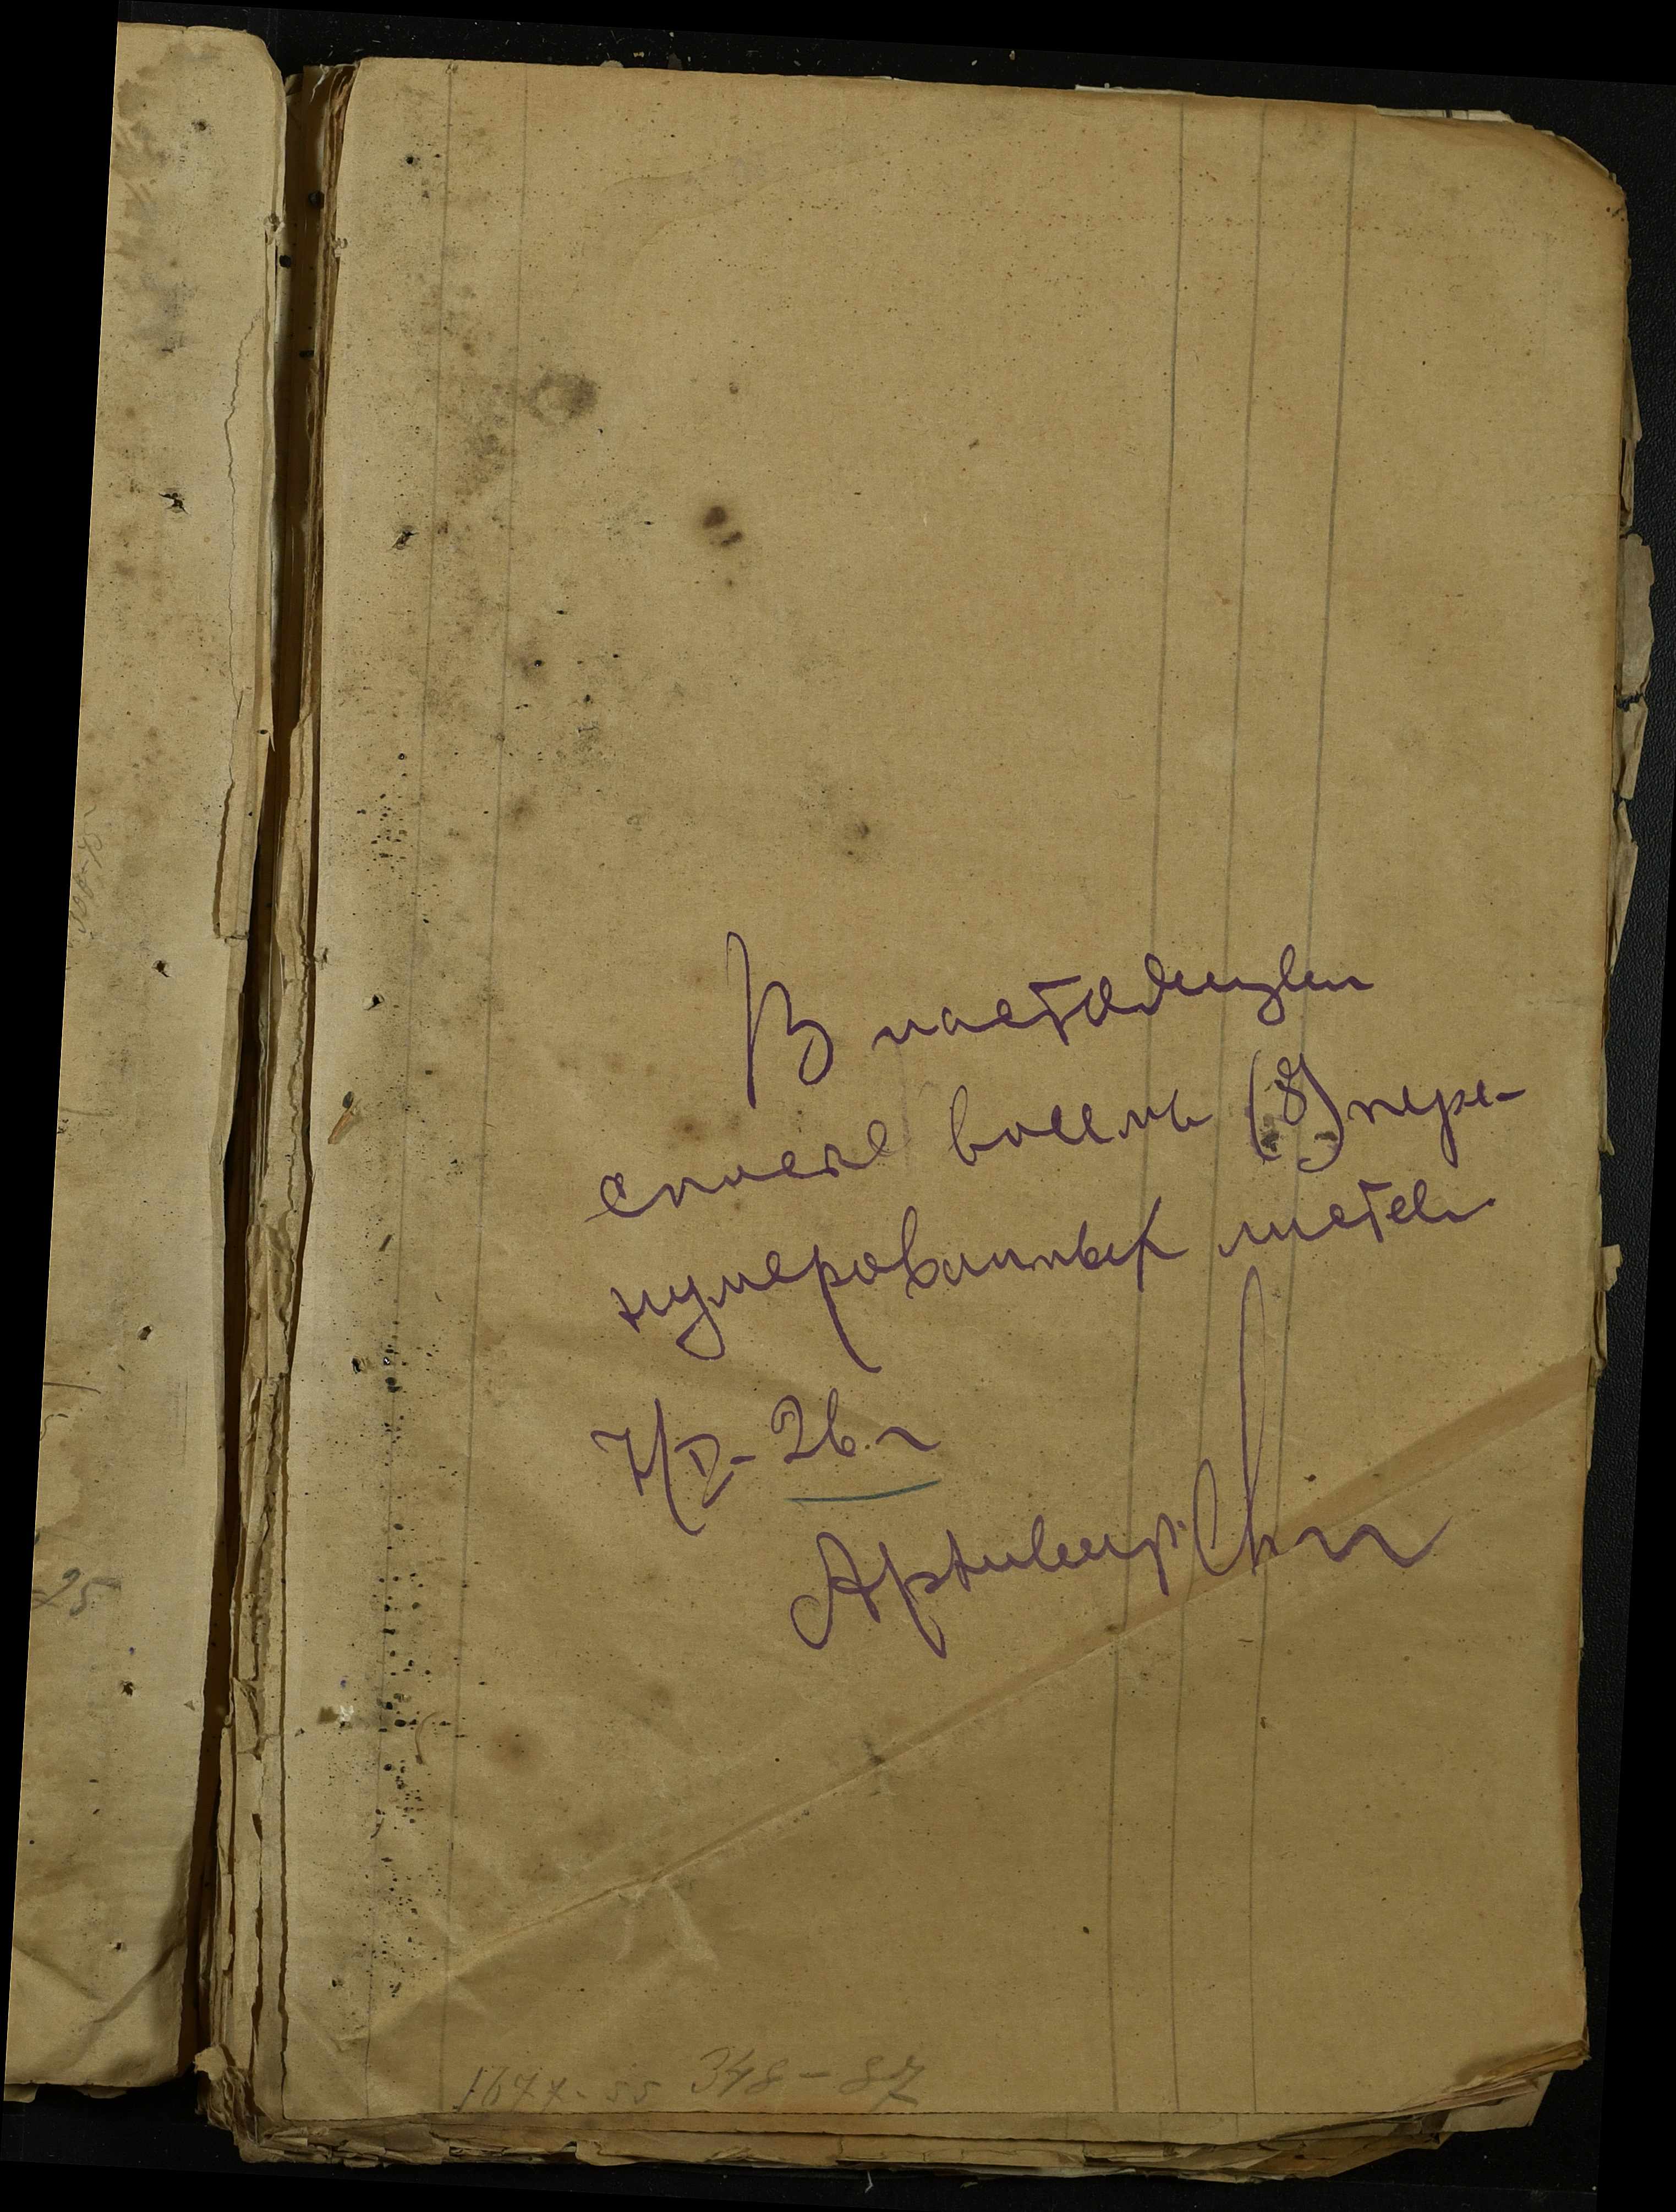 В настоящем
списке восемь (8) пере-
нумерованных листов
7/V-26.г
Архивариус
1677-55 348-87
25